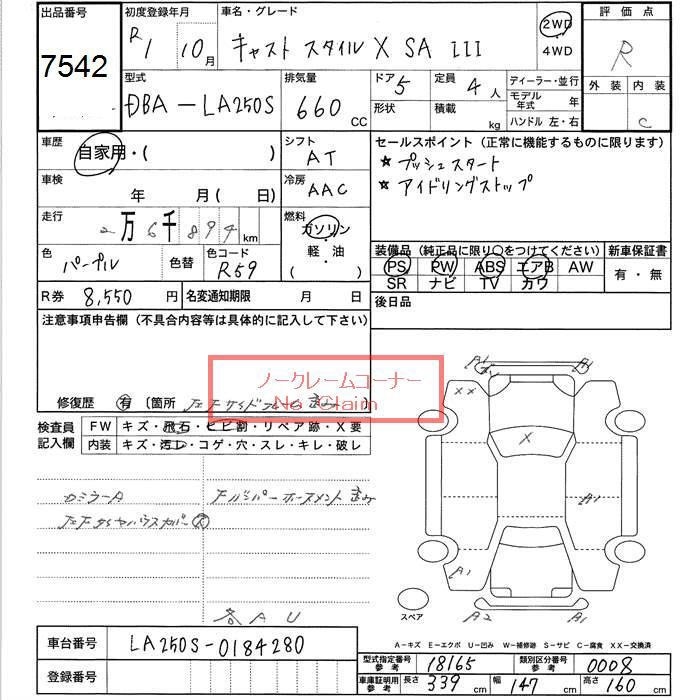 出品番号
7542
初度登録年月
R1 10月
車名・グレード
キャスト スタイル X SA III
2WD
4WD
評価点
R
外装 内装
C
型式
DBA-LA250S
排気量
660 CC
ドア 5
形状
定員 4 人
積載 kg
ディーラー・並行
モデル年式 年
ハンドル 左・右
車歴
自家用・( )
シフト
AT
車検
年 月 ( 日)
冷房
AAC
走行
2万6千894 km
燃料
ガソリン
軽・油
( )
色
パープル
色替
色コード
R59
セールスポイント(正常に機能するものに限ります)
★ プッシュスタート
★ アイドリングストップ
装備品(純正品に限り○をつけてください)
PS PW ABS エアB AW
SR ナビ TV カワ
新車保証書
有・無
R券 8,550 円
名変通知期限 月 日
後日品
注意事項申告欄(不具合内容等は具体的に記入して下さい)
ノークレームコーナー
No Claim
修復歴 有 〔箇所
検査員記入欄
FW キズ・飛石・ヒビ割・リペア跡・X要
内装 キズ・汚レ・コゲ・穴・スレ・キレ・破レ
Fバンパーホースメント
各AU
A1
A1
XX
X
A1
A1
A2
A1
スペア
A-キズ E-エクボ U-凹み W-補修跡 S-サビ C-腐食 XX-交換済
車台番号 LA250S-0184280
登録番号
型式指定番号参考 18165
類別区分番号参考 0008
車庫証明用参考 長さ 339 cm 幅 147 cm 高さ 160 cm